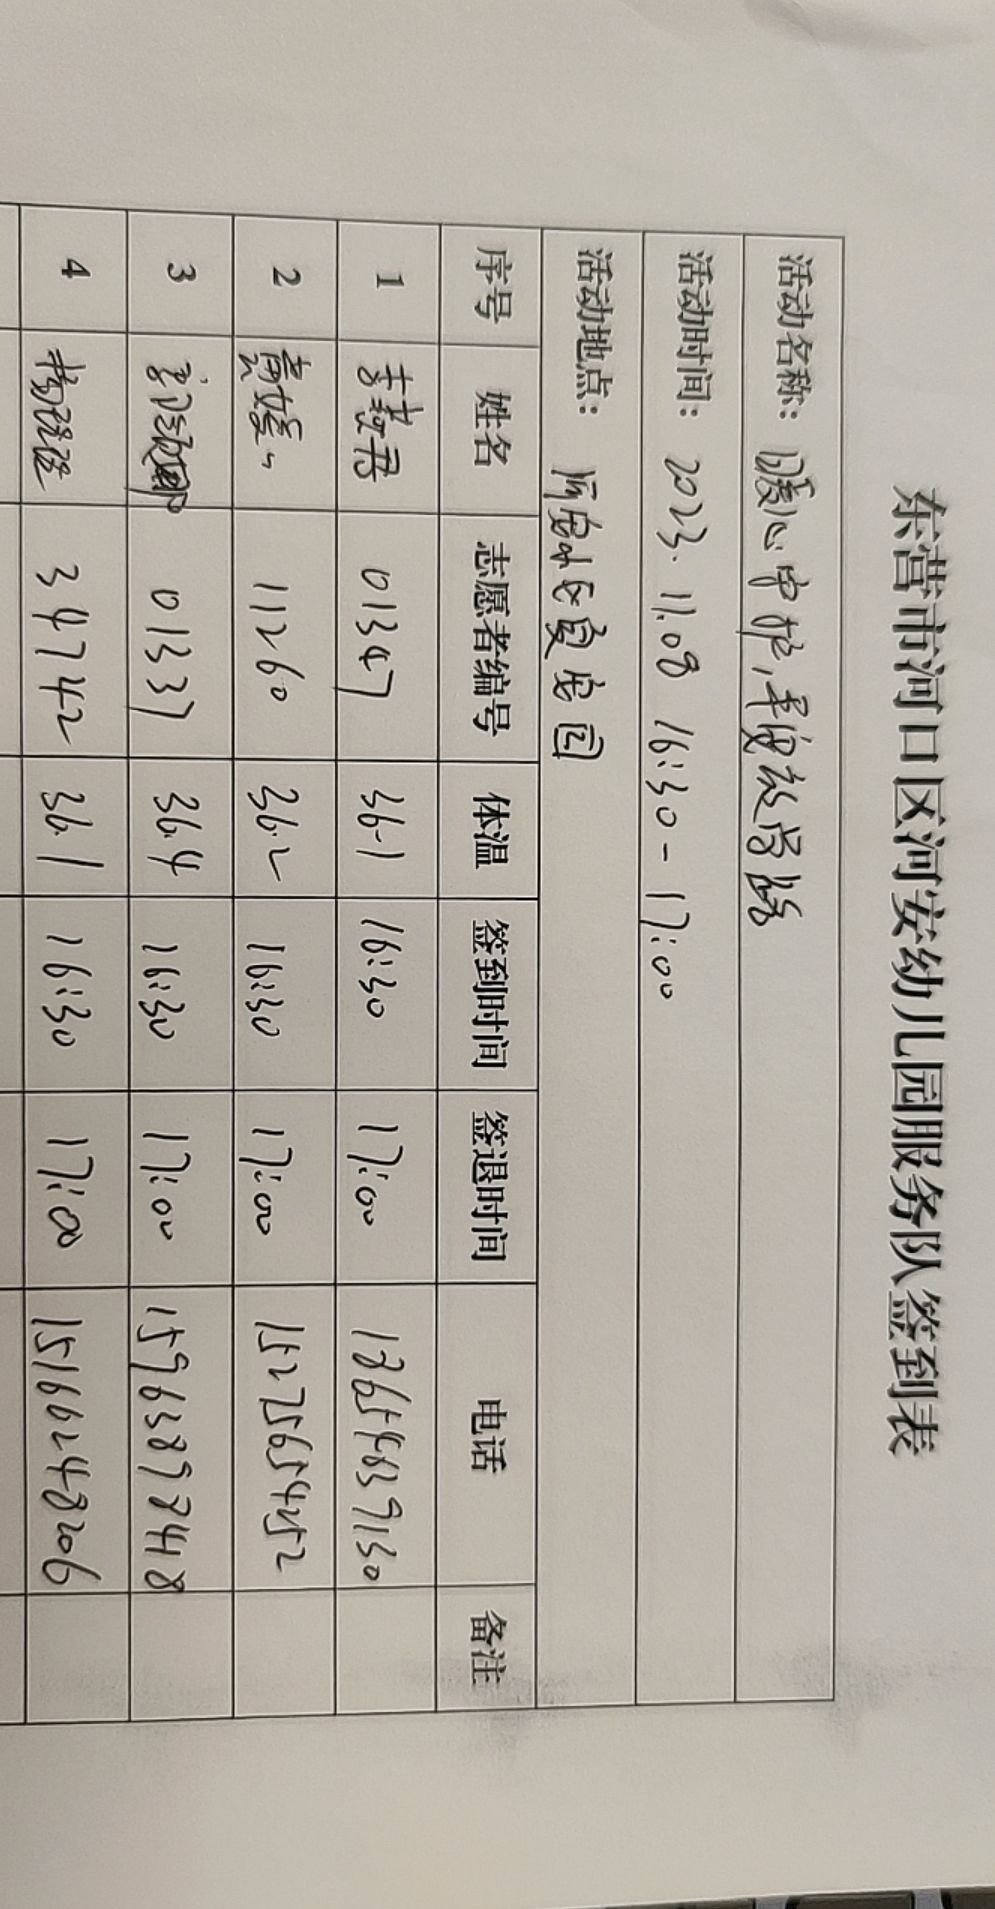 东营市河口区河安幼儿园服务队签到表
活动名称：暖心守护，平安放学路
活动时间：2023.11.08 16:30-17:00
活动地点：河安小区夏安园
序号 姓名 志愿者编号 体温 签到时间 签退时间 电话 备注
1 01347 36.1 16:30 17:00 18654639130
2 11260 36.2 16:30 17:00 15275654252
3 01337 36.4 16:30 17:00 15963898448
4 34742 36.1 16:30 17:00 15166248206